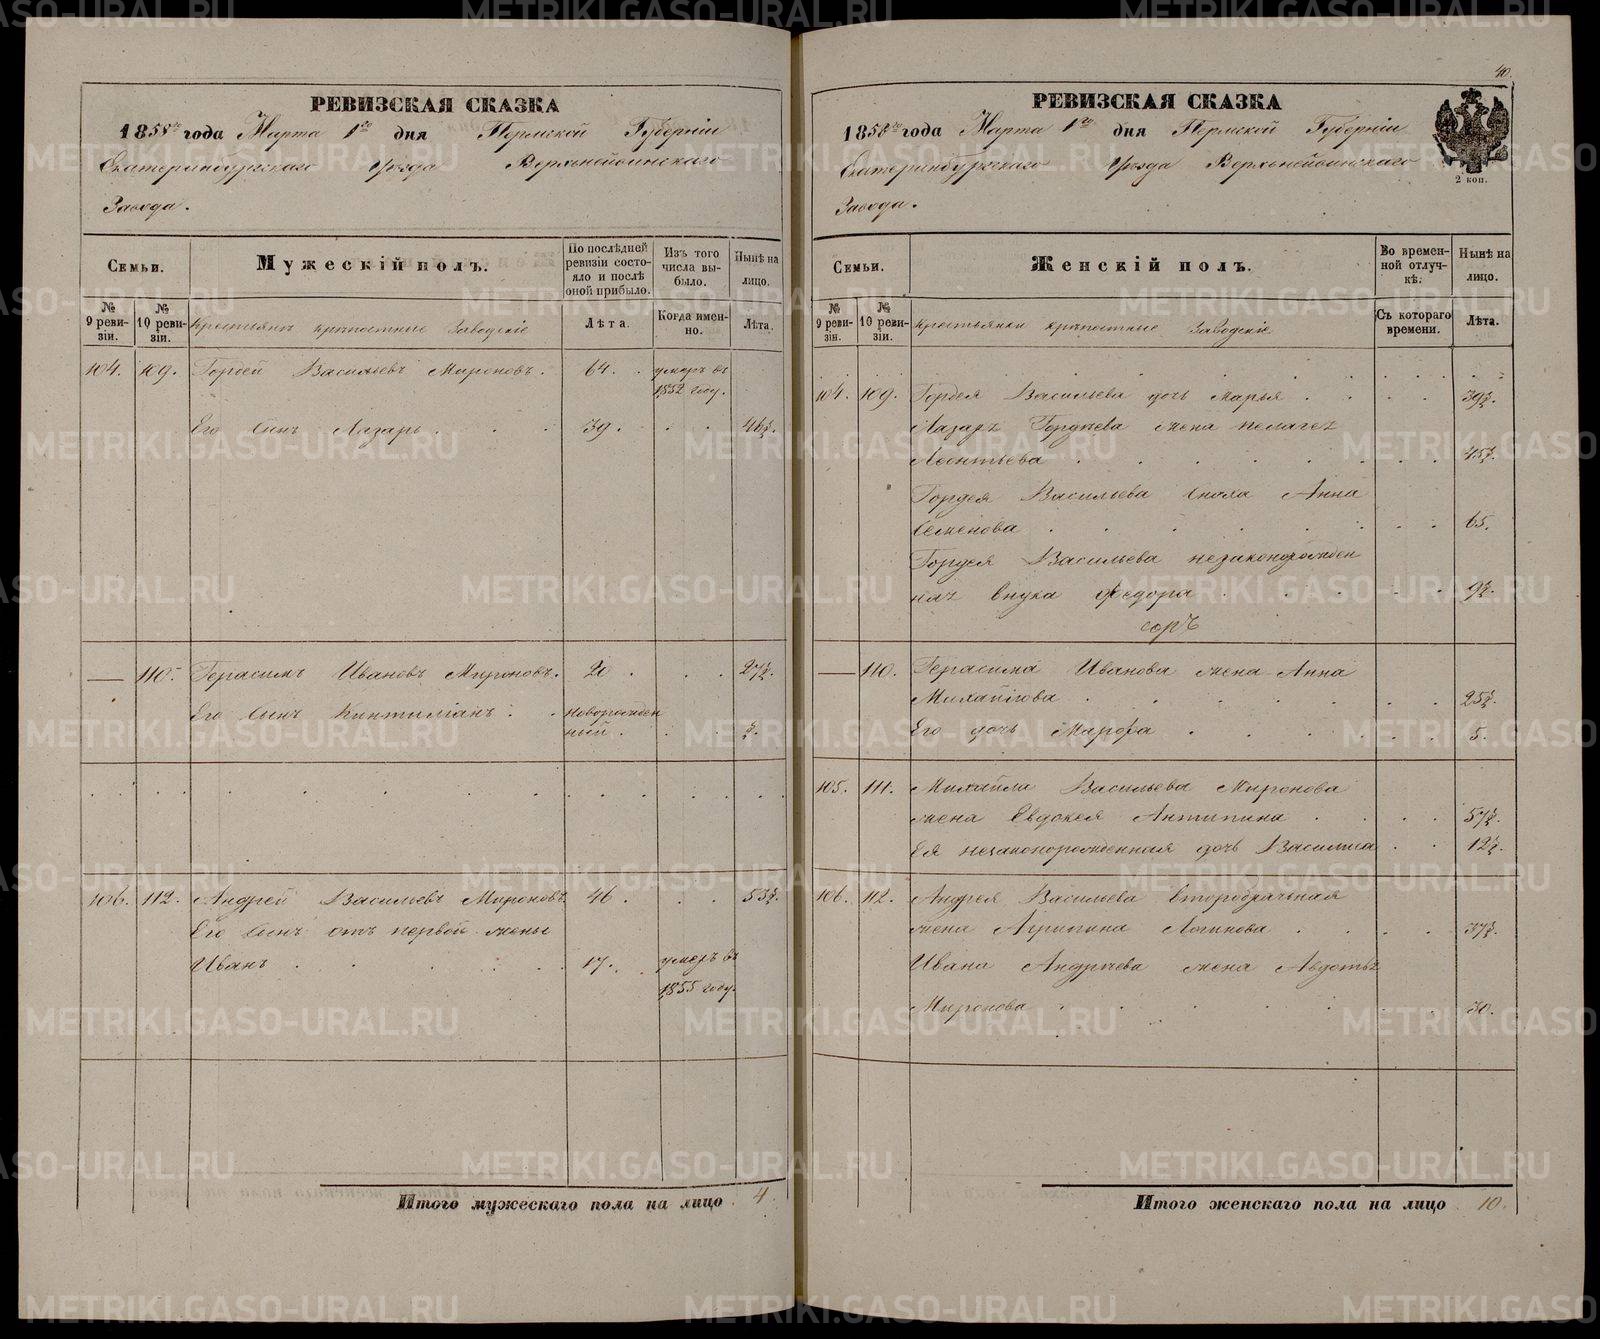 РЕВИЗСКАЯ СКАЗКА
1858го года Марта 1го дня Пермской Губерніи
Екатеринбургскаго уѣзда Верхнейвинскаго
Завода.
Семьи.
Мужескій полъ.
По послѣдней ревизіи состояло и послѣ оной прибыло.
Изъ того числа выбыло.
Нынѣ на лицо.
№ 9 ревизіи.
№ 10 ревизіи.
Крестьянъ крѣпостные Заводскіе
Лѣта.
Когда именно.
Лѣта.
104. 109. Гордей Васильевъ Мироновъ. 64. умеръ въ
1852 году.
Его сынъ Лазарь 39. 46½.
— 110. Герасимъ Ивановъ Мироновъ. 20. 27½.
Его сынъ Кинтиліанъ новорожден
ный. ½.
106. 112. Андрей Васильевъ Мироновъ 46. 53½.
Его сынъ отъ первой жены
Иванъ 17. умеръ въ
1855 году.
Итого мужескаго пола на лицо 4.
40.
РЕВИЗСКАЯ СКАЗКА
1858го года Марта 1го дня Пермской Губерніи
Екатеринбургскаго уѣзда Верхнейвинскаго
Завода.
2 коп.
Семьи.
Женскій полъ.
Во временной отлучкѣ.
Нынѣ на лицо.
№ 9 ревизіи.
№ 10 ревизіи.
Крестьянки крѣпостные Заводскіе
Съ котораго времени.
Лѣта.
104. 109. Гордея Васильева дочь Марья 39½.
Лазаря Гордѣева жена Пелагея
Леонтьева 45½.
Гордея Васильева сноха Анна
Семенова 65.
Гордея Васильева незаконорожден
ная внука Федора 9½.
— 110. Герасима Иванова жена Анна
Михайлова 25½.
Его дочь Марфа 5.
105. 111. Михайла Васильева Миронова
жена Евдокея Антипина 57½.
Ея незаконорожденная дочь Василиса 12½.
106. 112. Андрея Васильева второбрачная
жена Агрипина Логинова 37½.
Ивана Андрѣева жена Авдотья
Миронова 30.
Итого женскаго пола на лицо 10.
METRIKI.GASO-URAL.RU